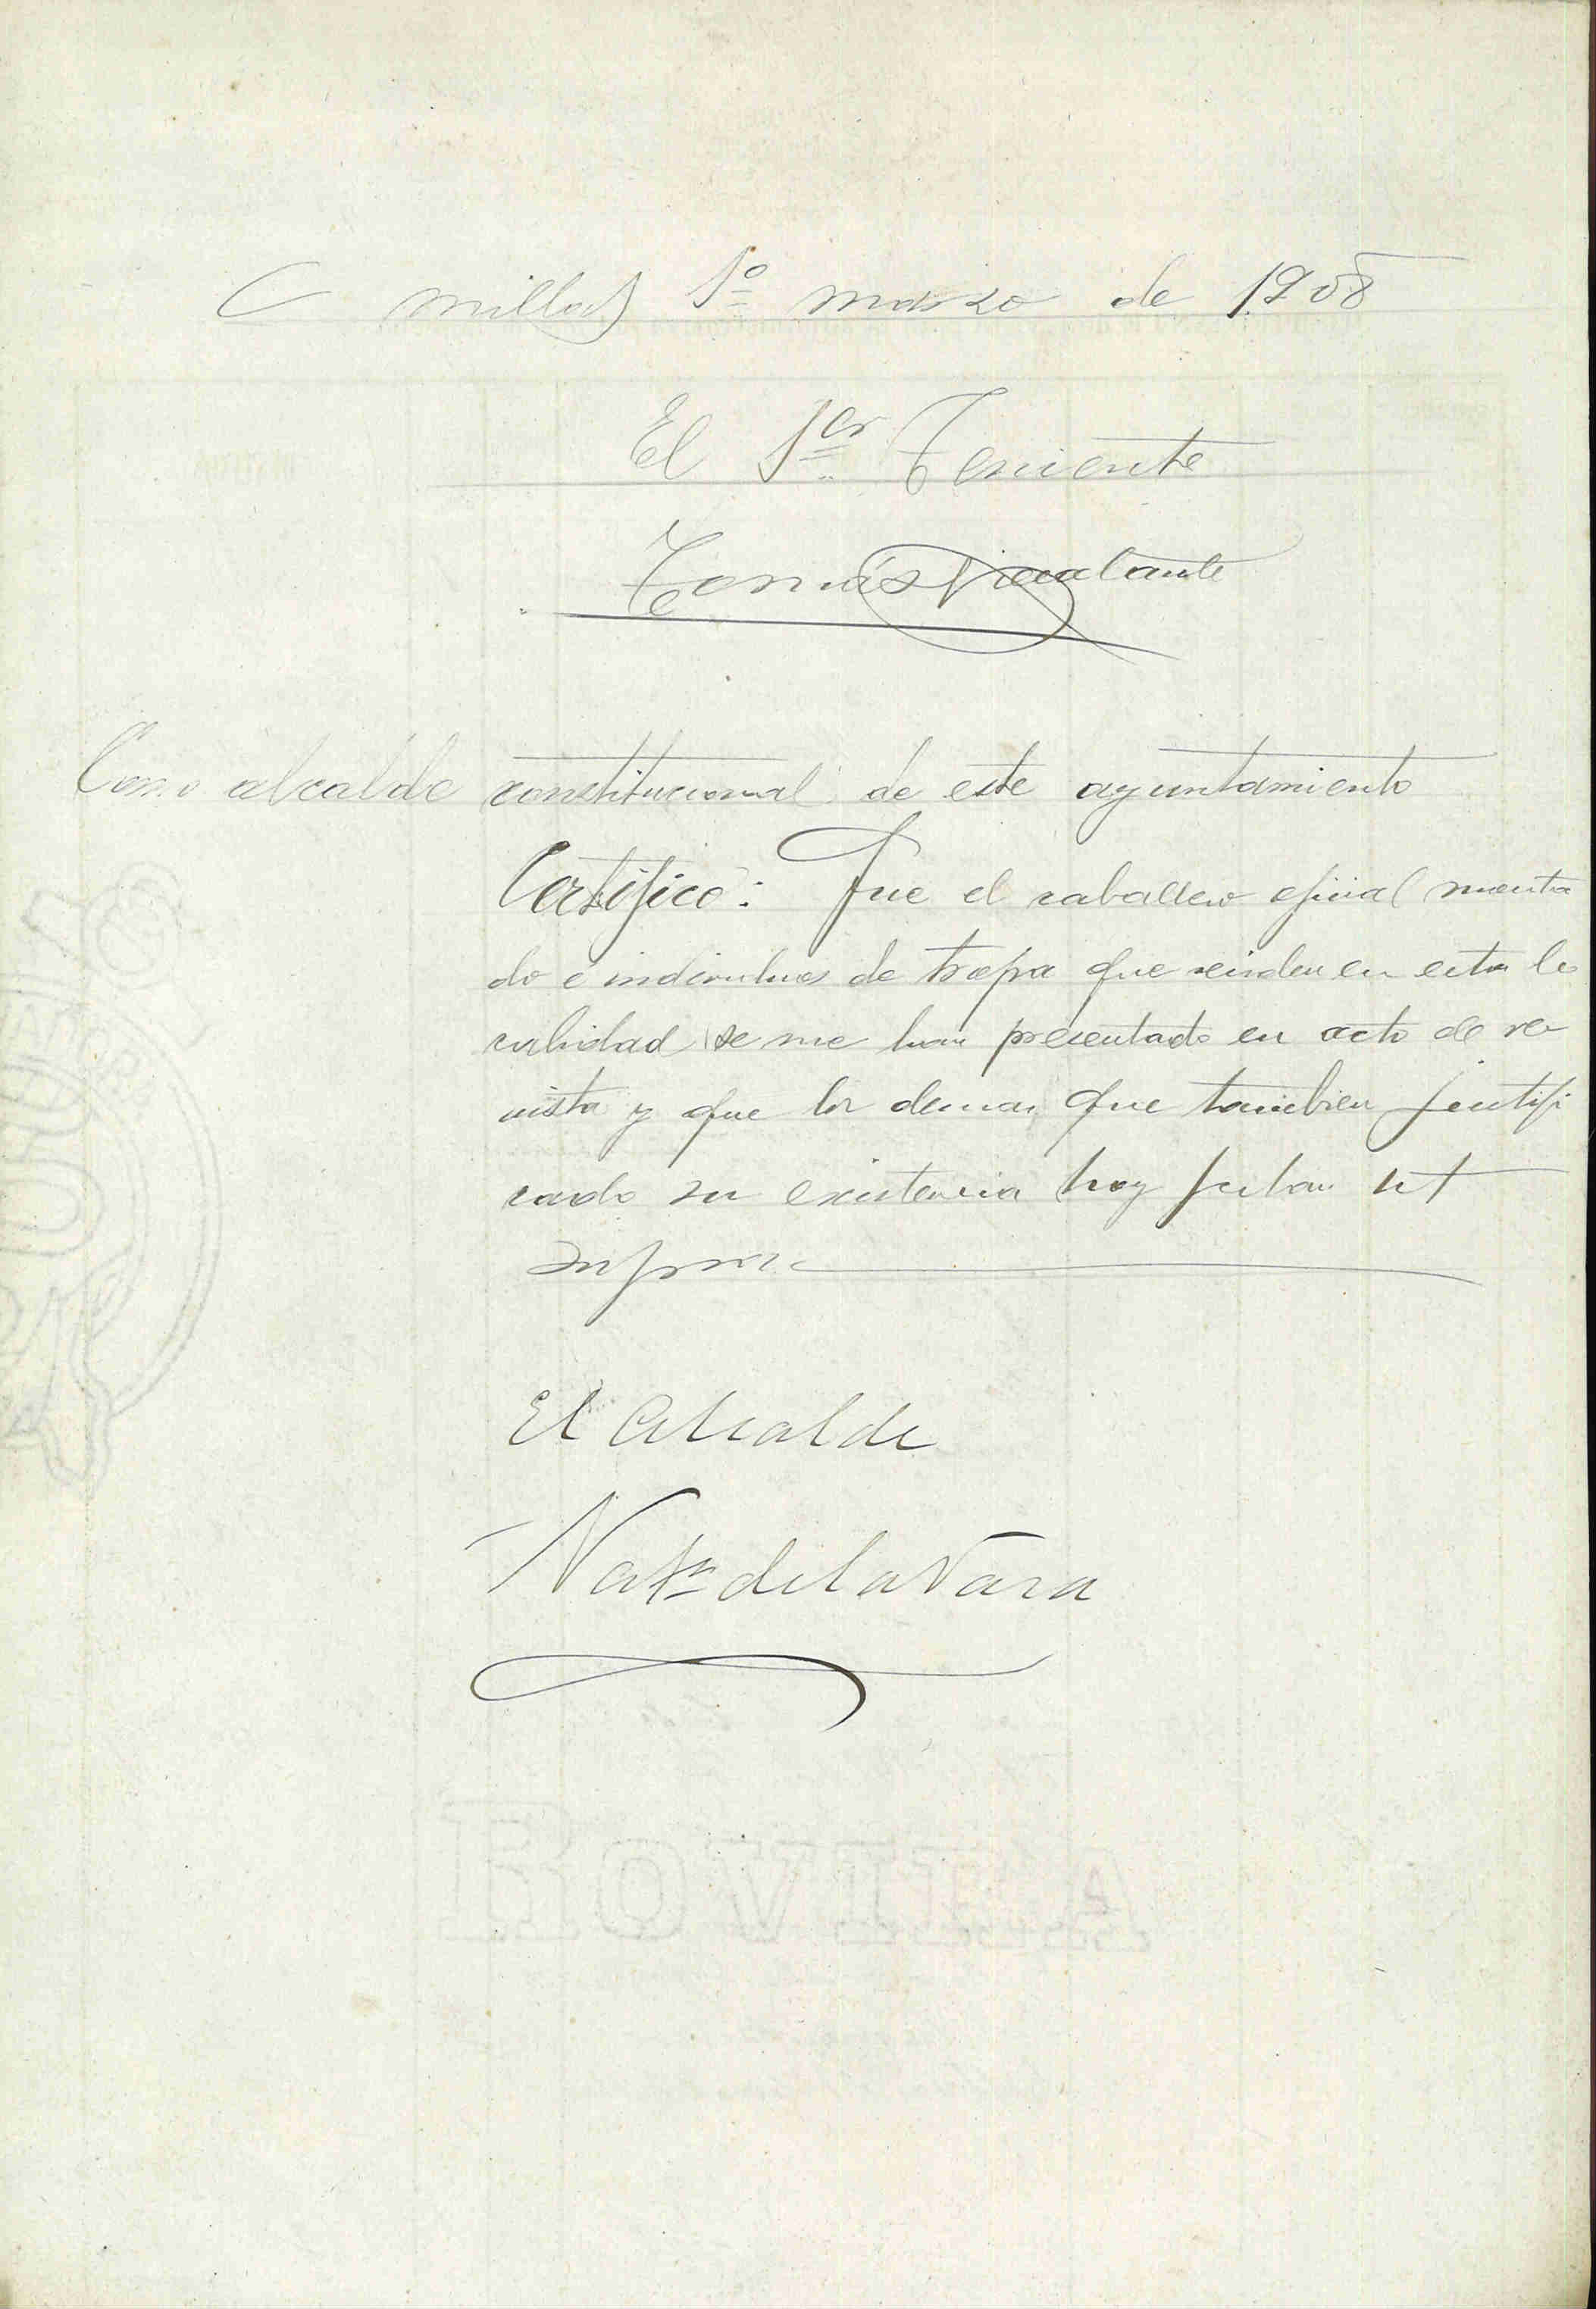 Comillas 1º marzo de 1908
El 1er Teniente
Tomás
Como alcalde constitucional de este ayuntamiento
Certifico: Que el caballero oficial menta
do e individuos de tropa que residen en esta lo
calidad se me han presentado en acto de re
vista y que los demas que tambien justifi
cado su existencia hoy fecha ut
supra
El Alcalde
de la Vara
ROVIRA